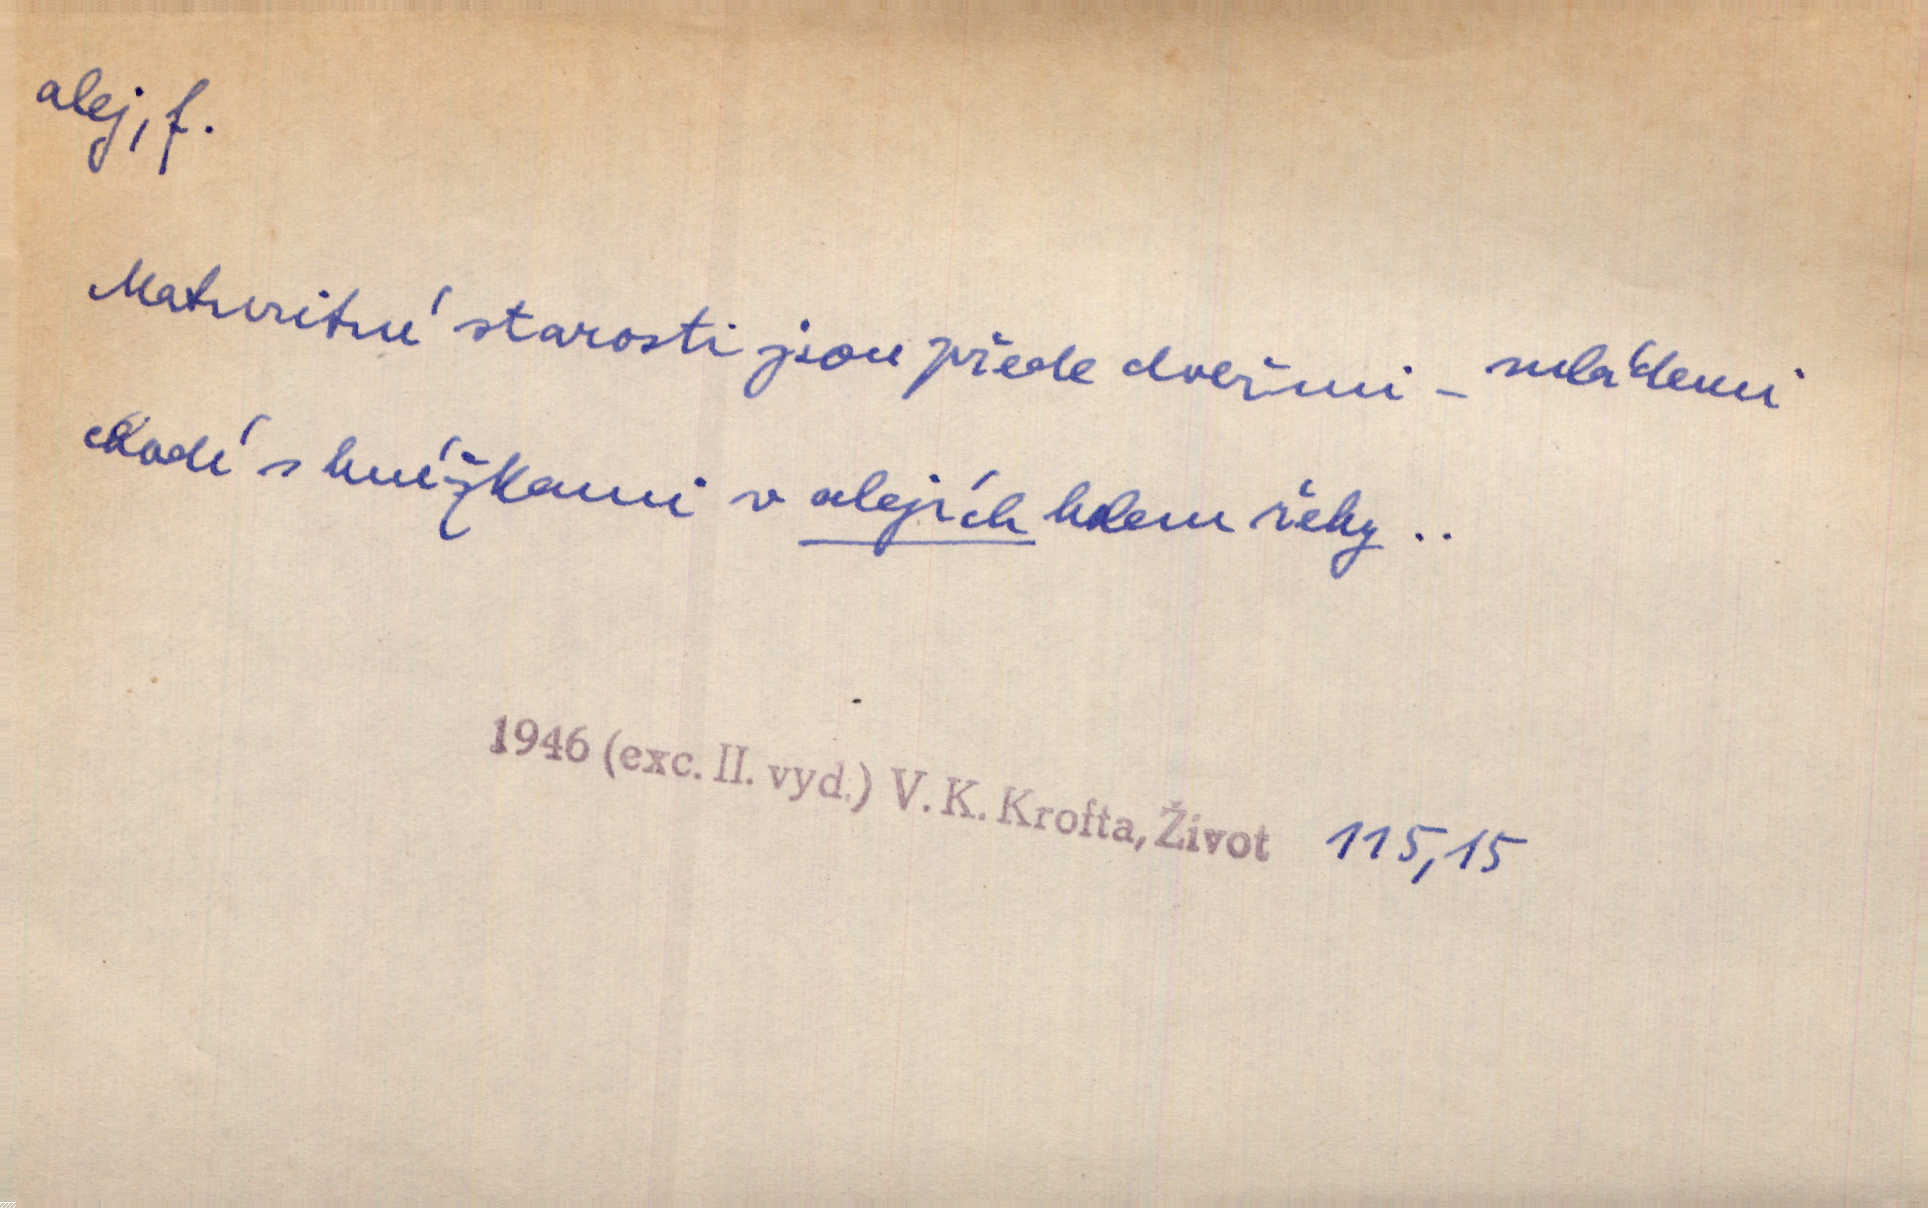 alej, f.
Maturitní starosti jsou přede dveřmi – mládenci
chodí s knížkami v alejích kolem řeky ..
1946 (exc. II. vyd.) V. K. Krofta, Život 115,15